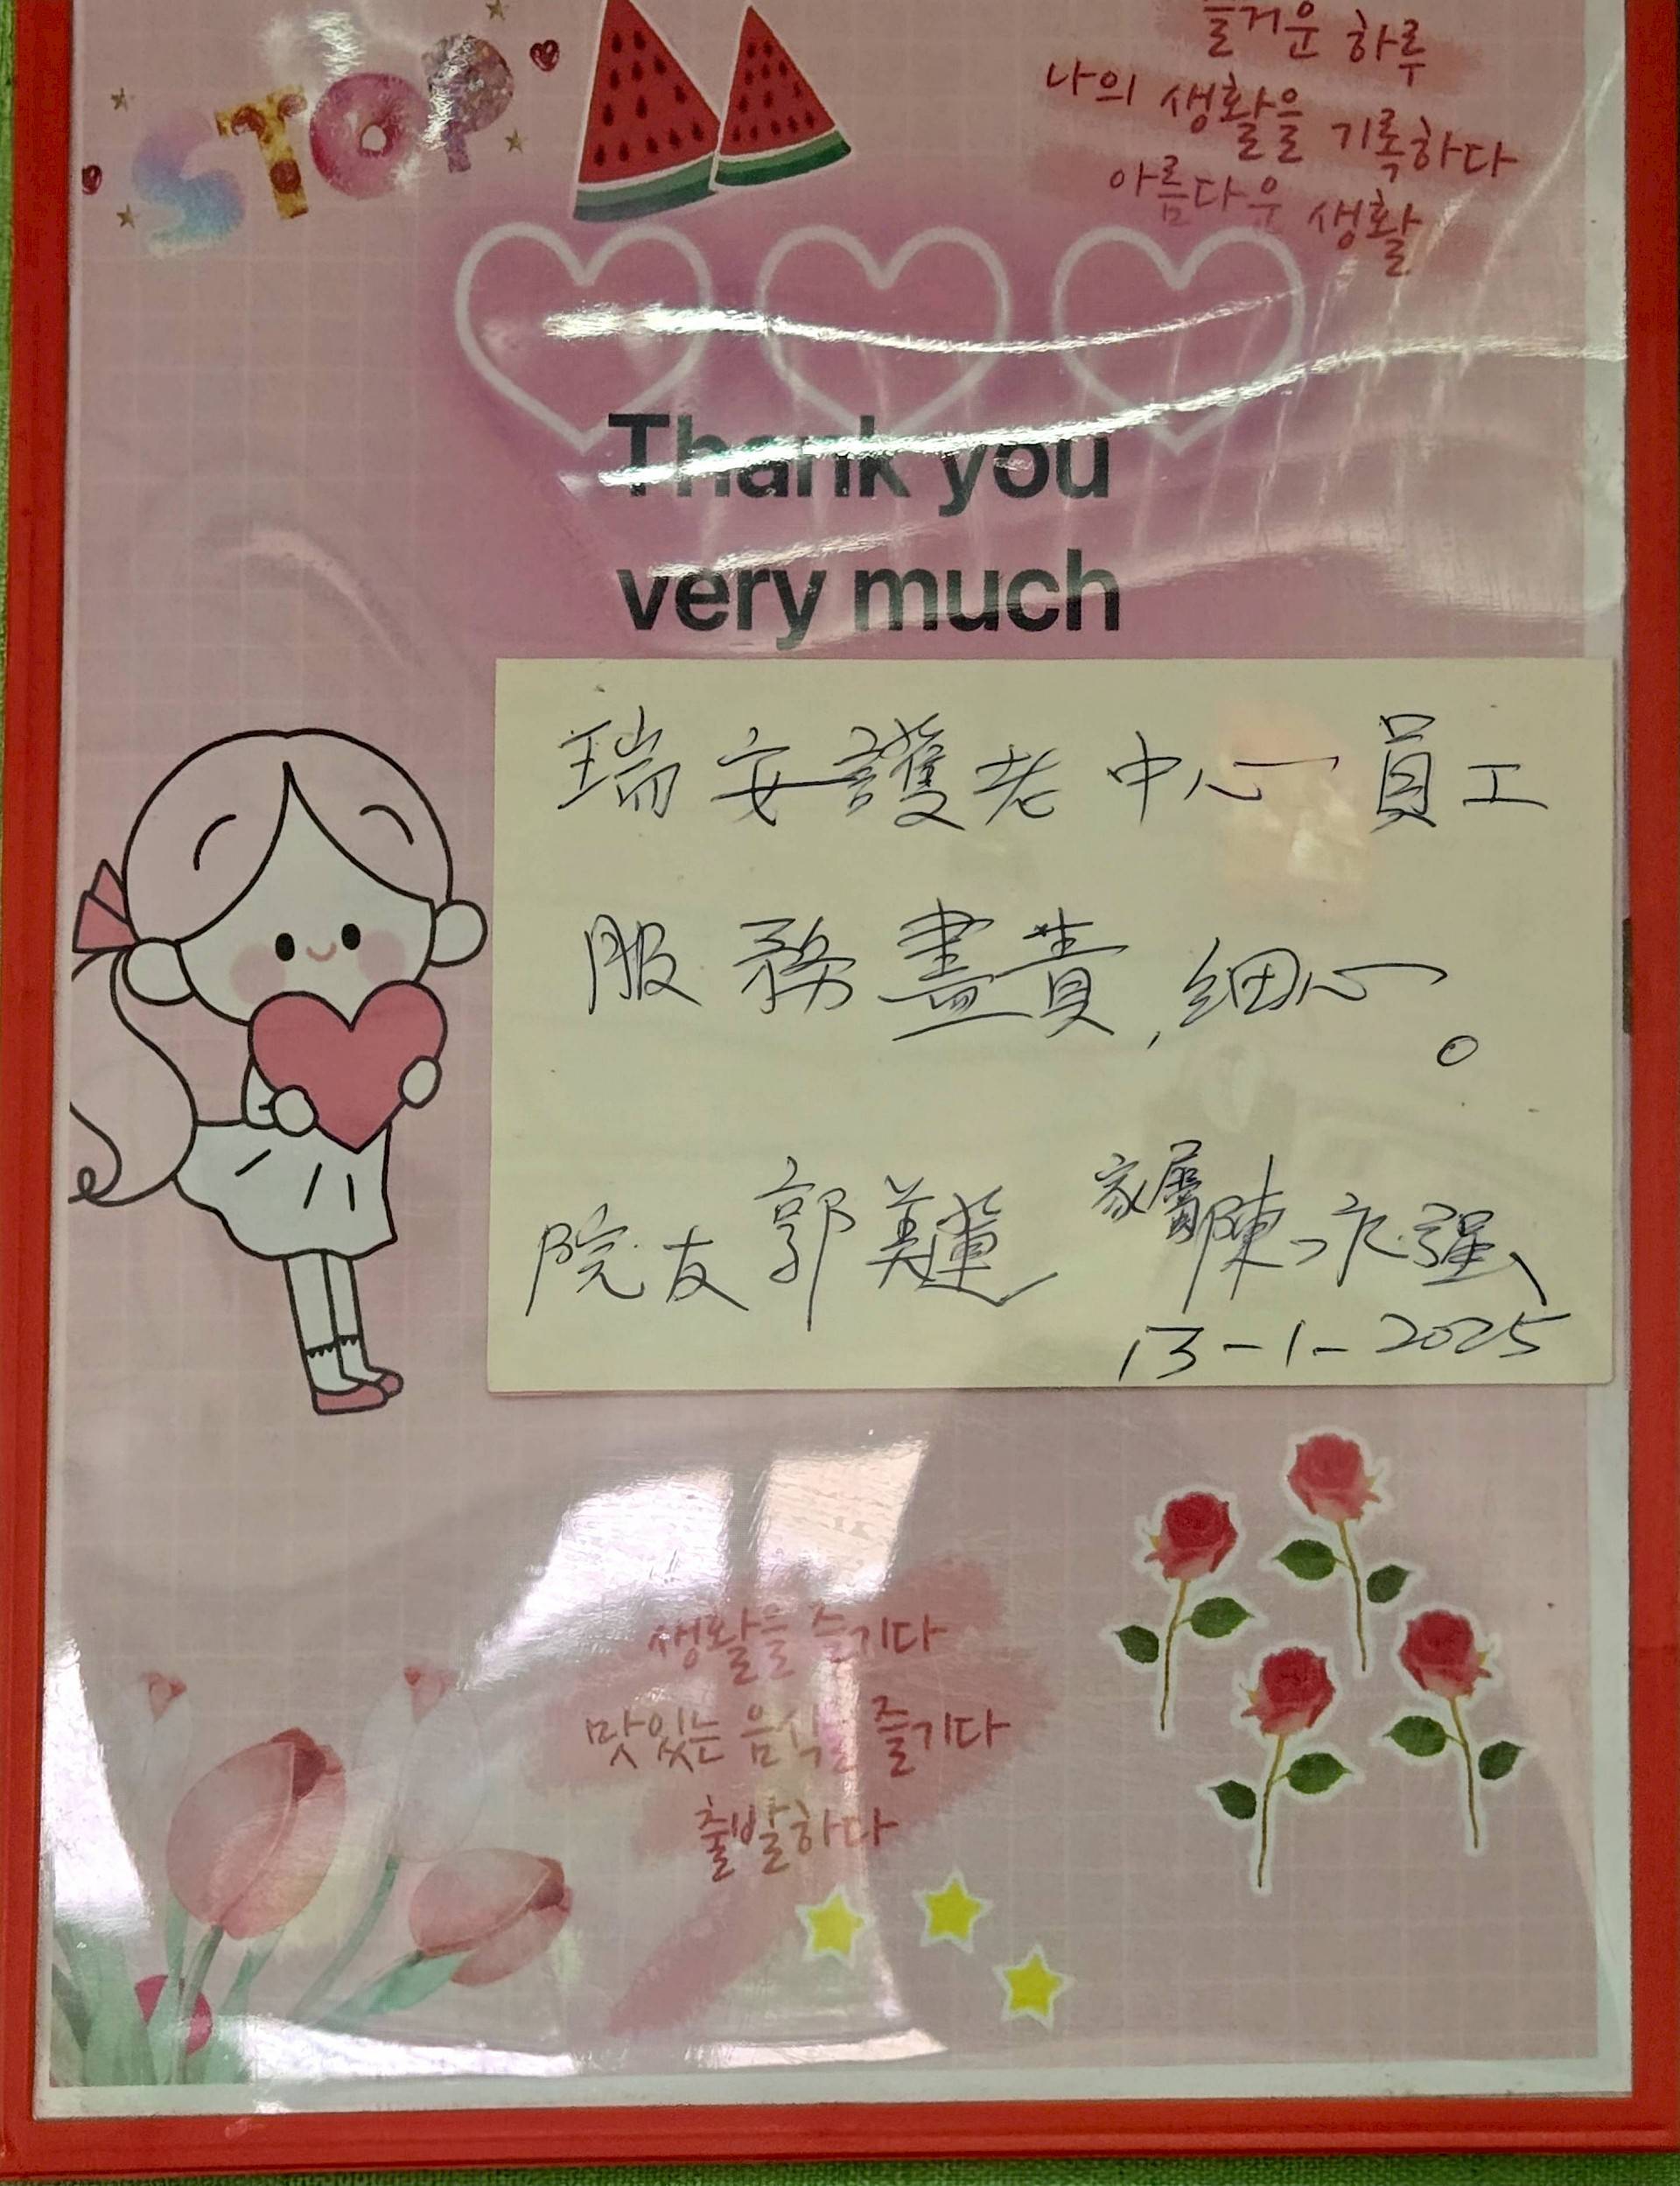 STOP
즐거운 하루
나의 생활을 기록하다
아름다운 생활
Thank you
very much
瑞安護老中心員工
服務盡責,細心。
院友郭美蓮 家屬陳永强
13-1-2025
생활을 즐기다
맛있는 음식을 즐기다
출발하다